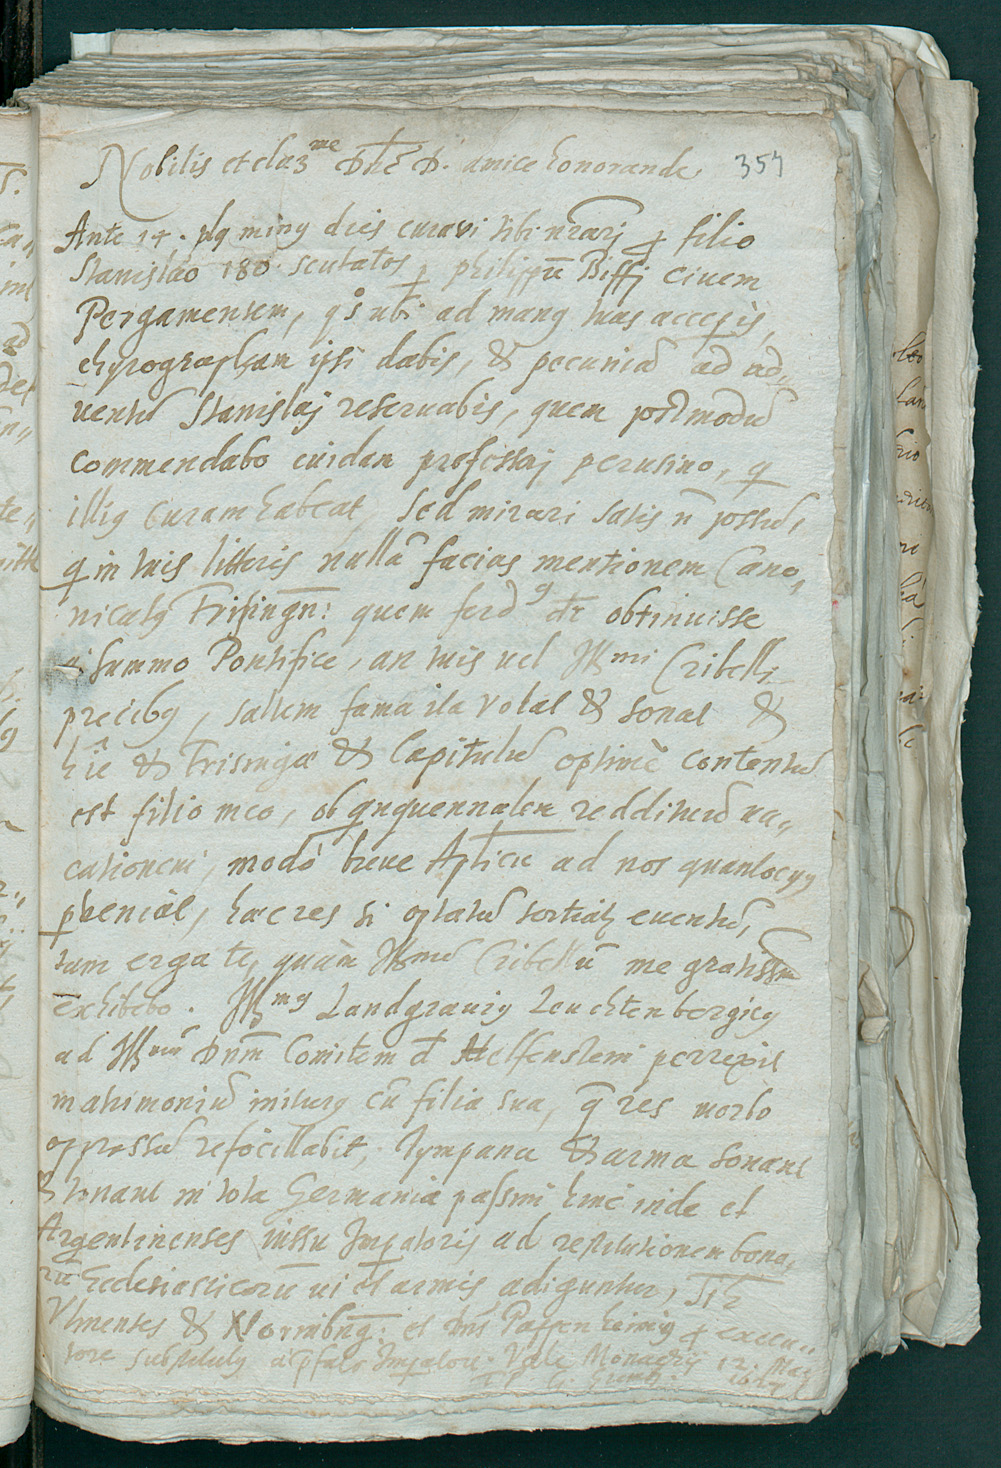 Nobilis et clar^me Dne D. amice honorande 357
Ante 14. plq minq dies curavi tibi nrarj ꝓ filio
Stanislao 180. scutatos p philippū Biffj Civem
Pergamensem, qs ubi ad manq tuas accesis,
chyrographam ipsi dabis, & pecuniā ad ad„
uentū Stanislaj reseruabis, quem postmodū
commendabo cuidam professorj perusino, q
illiq curam habeat, Sed mirari satis n possū,
q in tuis litteris nullā facias mentionem Cano„
nicatq Frisingn: quem ferd^9 dr obtinuisse
a summo Pontifice, an tuis uel Ill^mi Cribelli
precibq, saltem fama ita volat & sonat &
hic & Frisingæ & Capitulū optimè contentū
est filio meo, ob qnquennalem reddituū ua„
cationem, modò breve Aplicū ad nos quantocyq
pveniat, hæc res si optatū sortiatr euentū,
tam erga te, quàm Illmū Cribellū me gratissm
exhibebo. Ill^mq Landgrauiq Leuchtenbergicq
ad Illmū Dnm Comitem d Helfenstein perrexit
matrimoniū initurq cū filia sua, q res morbo
oppressū refocillabit, Tympana & arma sonant
& tonant in tota Germania passim hinc inde et
Argentinenses iussu Impatoris ad restitutionem bono„
rū Ecclesiasticorū ui et armis adiguntur,
Vlmenses & Normbng: et dns Pappenheimiq ꝓ execu„
tore substitutq a pfato Impatore. Vale Monachij 12. Maij